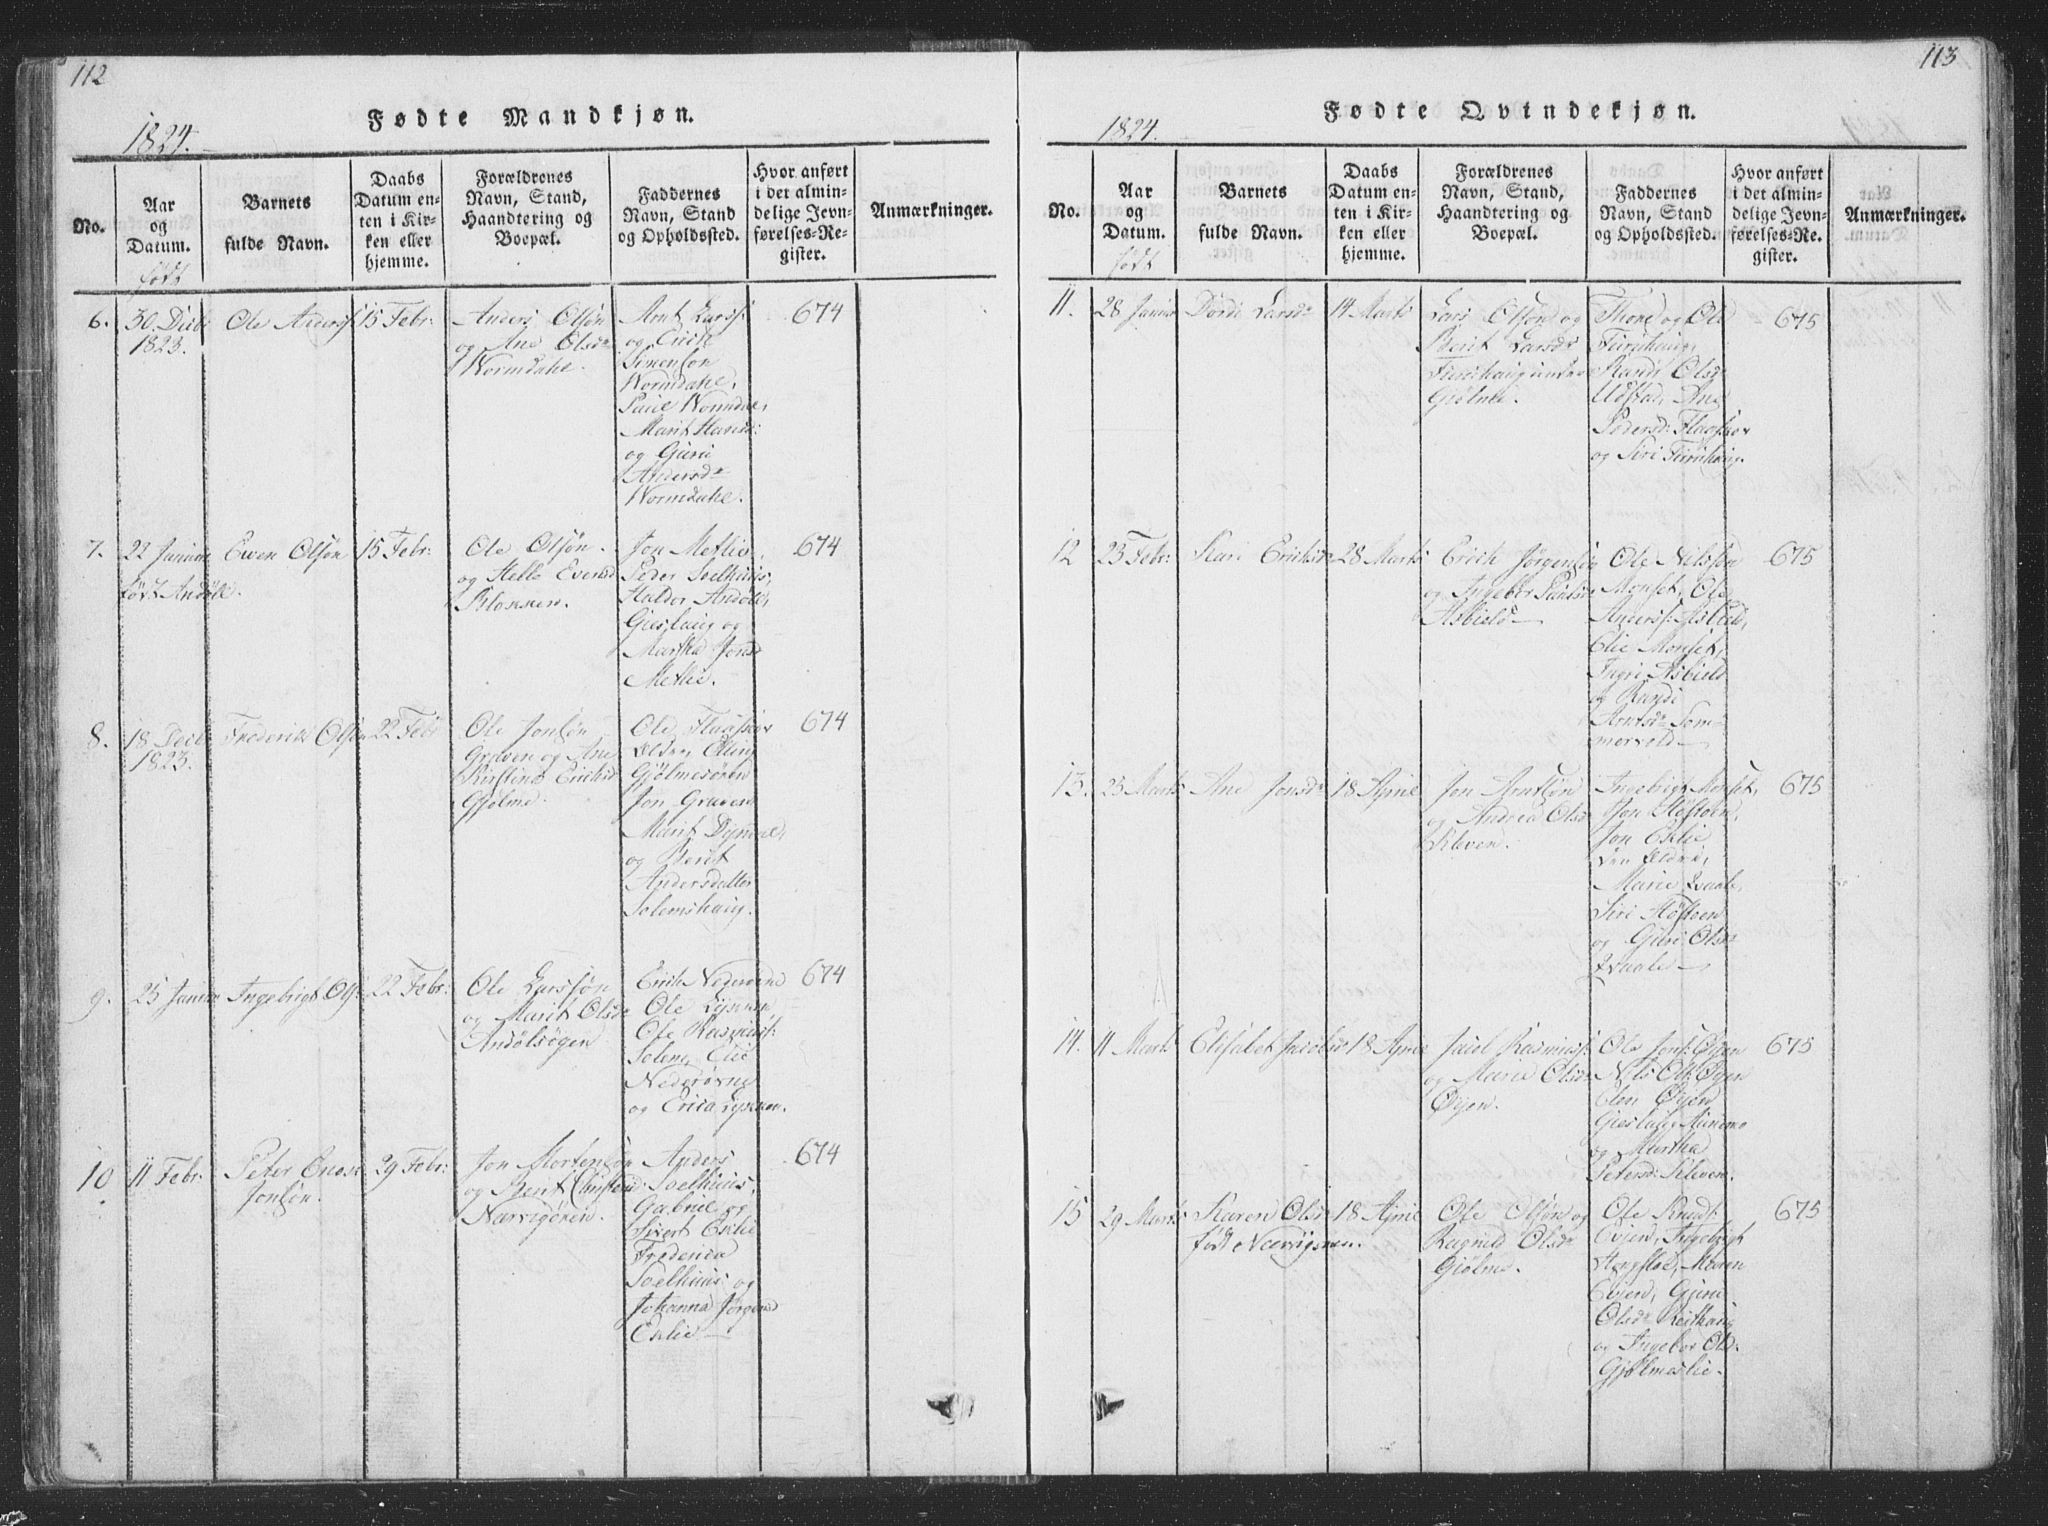 112
Fødte Mandkjøn.
1824.
No.
Aar
og
Datum.
født
Barnets
fulde Navn.
Daabs
Datum en-
ten i Kir-
ken eller
hjemme.
Forældrenes
Navn, Stand,
Haandtering og
Boepæl.
Faddernes
Navn, Stand
og Opholdssted.
Hvor anført
i det almin-
delige Jevn-
førelses-Re-
gister.
Anmærkninger.
6.
30 Decbr
1823.
Ole Anderss:
15 Febr:
Anders Olsøn
og Ane Olsdr
Wormdahl.
Arnt Larss:
og Erich
Simenson
Wormdahl,
Paul Wormdal,
Marit Hansd:
og Guri
Andersdr
Wormdahl.
674
7.
22 Januar
født Andøll.
Ewen Olsøn
15 Febr:
Ole Olsøn
og Helle Evensd
Klokken.
Jon Metlie,
Peder Soelhuus,
Haldor Andøll,
Gieslaug og
Martha Jonsd
Metlie.
674
8.
18 Decbr
1823.
Frederik Olsøn
22 Febr
Ole Jonsøn
Graven og Ane
Kirstina Erichsd
Gjølme.
Ole Flaaskov
Elder, Elling
Gjølmesøren
Jon Graven
Marit Dyrendl,
og Berit
Andersdatter
Solemshaug.
674
9.
25 Januar
Ingebrigt Ols:
22 Febr:
Ole Larssøn
og Marit Olsdr
Andølsøgen
Erich Nederøvne
Ole Lykken
Ole Rasmuss:
Solem, Elie
Nederøvne
og Erica Lykken.
674
10
11 Febr:
Peter Enoch
Jonsøn.
29 Febr:
Jon Mortensøn
og Berit Christensd:
Nærvigøren.
Anders
Soelhuus,
Gabriel og
Sivert Eklie
Frederica
Soelhuus og
Johanna Jørgensd
Eklie —
674
113
Fødte Qvindekjøn.
1824.
No.
Aar
og
Datum.
født
Barnets
fulde Navn.
Daabs
Datum en-
ten i Kir-
ken eller
hjemme.
Forældrenes
Navn, Stand,
Haandtering og
Boepæl.
Faddernes
Navn, Stand
og Opholdssted.
Hvor anført
i det almin-
delige Jevn-
førelses-Re-
gister.
Anmærkninger.
11.
28 Januar
Dordi Larsdr
14 Marts
Lars Olsøn og
Berit Larsdr
Furuhaug under
Gjølme.
Thore og Ole
Furuhaug,
Randi Olsdr
Udstad, Ane
Pedersd: Flaaskov
og Siri Furuhaug.
675
12
23 Febr:
Kari Erichsdr
28 Marts
Erich Jørgensøn
og Ingebor Paulsdr
Asbield —
Ole Nilssøn
Monset, Ole
Anderss: Asbield,
Elie Monset,
Ingri Asbield
og Randi
Arntsdr Som-
mervold —
675
13.
25 Marts
Ane Jonsdr
18 April
Jon Arntsøn
og Andrea Olsdr
Kleven.
Ingebrigt Monset,
Jon Støstoen,
Jon Eklie
den Eldre,
Marie Kvaale,
Siri Støstoen
og Guri Olsdr
Kvaale —
675
14.
11 Marts
Elisabet Jacobsd
18 April
Jacob Rasmuss:
og Marie Olsdr
Øyen.
Ole Jons: Øyen
Nils Ols: Øyen
Elen Øyen
Gieslaug Aunemo
og Martha
Petersd: Kleven.
675
15
29 Marts
Karen Olsdr
født Nærvigsøren.
18 April
Ole Olsøn og
Ragnild Olsdr
Gjølme.
Ole Knuds:
Evjen, Ingebrigt
Hongsloe, Maren
Evjen, Guri
Olsdr Reithaug
og Ingebor Olsd:
Gjølmeslie.
675